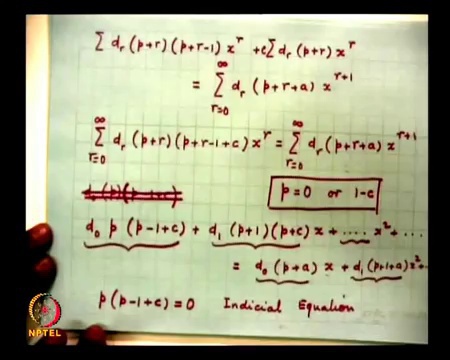 Σ d_r (p+r)(p+r-1) x^r + c Σ d_r (p+r) x^r
= Σ_{r=0}^{∞} d_r (p+r+a) x^{r+1}
Σ_{r=0}^{∞} d_r (p+r)(p+r-1+c) x^r = Σ_{r=0}^{∞} d_r (p+r+a) x^{r+1}
p=0 or 1-c
d_0 p (p-1+c) + d_1 (p+1)(p+c) x + .... x^2 + ....
= d_0 (p+a) x + d_1 (p+1+a) x^2 + ..
p(p-1+c)=0 Indicial Equation
NPTEL